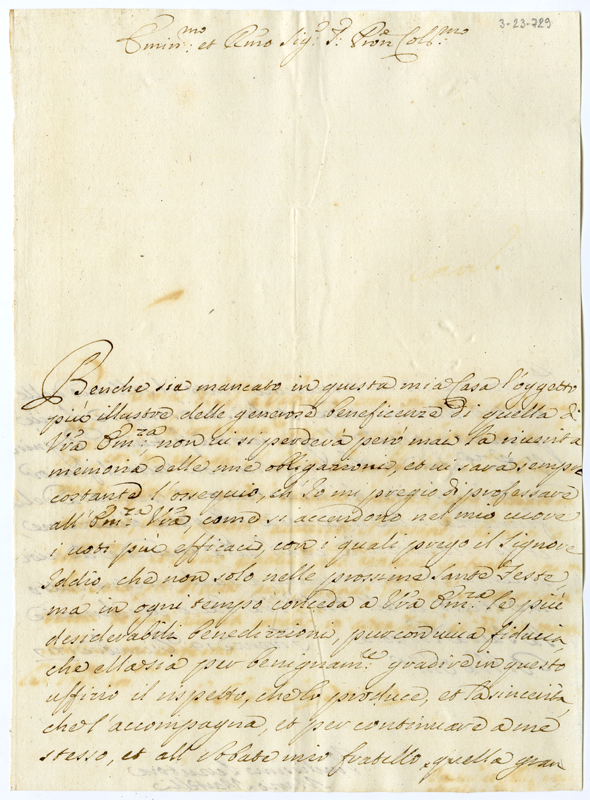 3-23-729
Emin.mo et R.mo Sig.r P.ron Col.mo
Benche sia mancato in questa mia Casa l'oggetto
più illustre delle generose beneficenze di quella di
Vra Em.za non vi si perderà però mai la riverita
memoria delle mie obligazioni, et vi sarà sempre
costante l'ossequio, ch'Io mi pregio di professare
all'Em.za Vra come si accendono nel mio cuore
i voti più efficaci, con i quali prego il Signore
Iddio, che non solo nelle prossime Sante Feste
ma in ogni tempo conceda a Vra Em.za le più
desiderabili benedizzioni, pur con viva fiducia
che ella sia per benignam.te gradire in questo
uffizio il rispetto, che lo produce, et la sincerità,
che l'accompagna, et per continuare a me
stesso, et all'Abbate mio fratello, quella gran